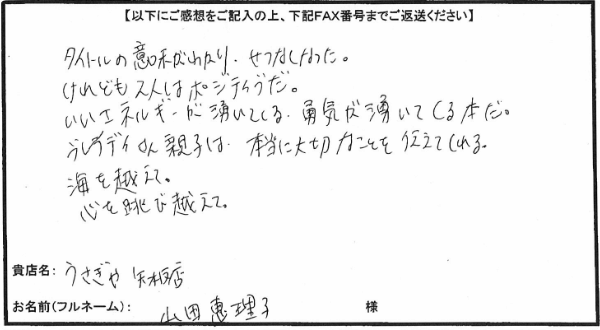 【以下にご感想をご記入の上、下記FAX番号までご返送ください】
タイトルの意味がわかり、せつなくなった。
けれども2人はポジティブだ。
いいエネルギーが湧いてくる、勇気が湧いてくる本だ。
ブレイディさん親子は、本当に大切なことを伝えてくれる。
海を越えて。
心を跳び越えて。
貴店名：うさぎや 矢板店
お名前(フルネーム)：山田恵理子 様